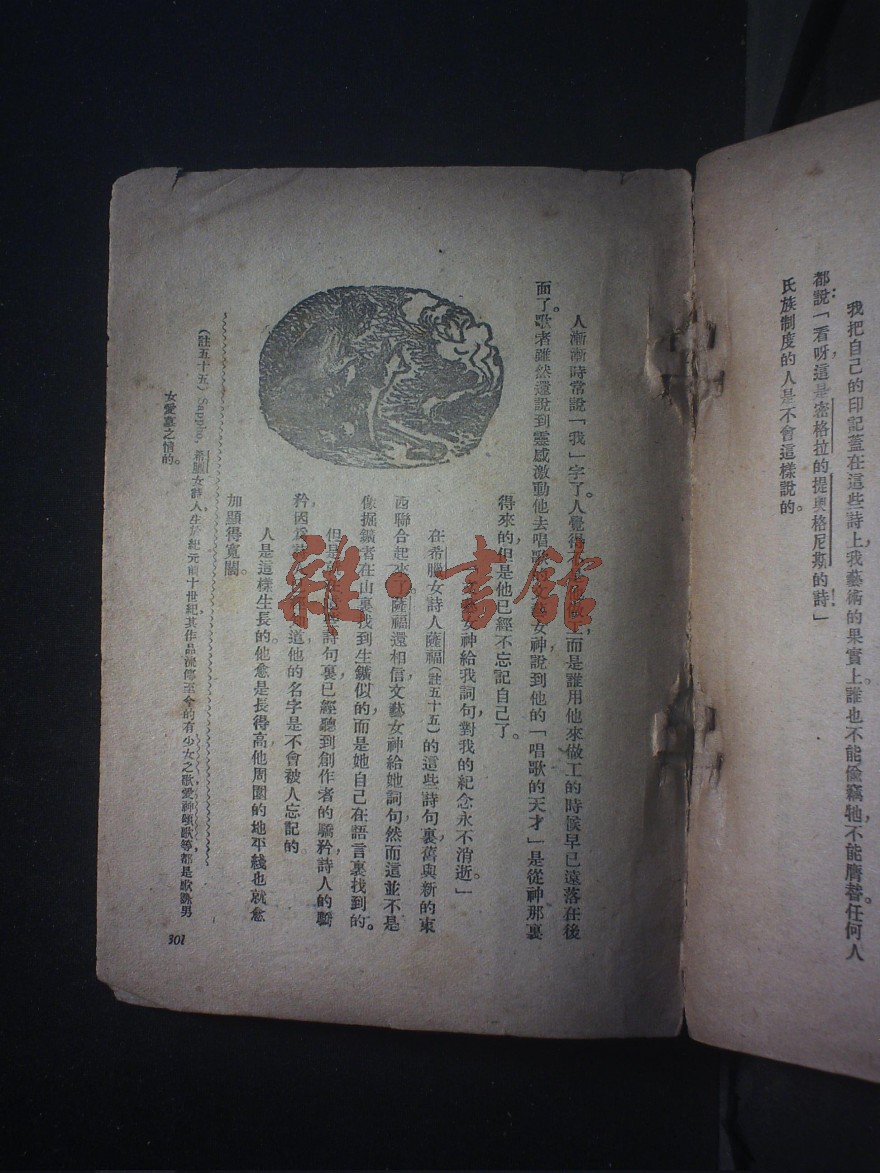 我把自己的印記蓋在這些詩上我藝術的果實上誰也不能偷竊牠不能膺替任何人
都說：「看呀，這是密格拉的提奧格尼斯的詩！」
氏族制度的人是不會這樣說的。
人漸漸時常說「我」字了。人覺得 而是誰用他來做工的時候早已遠落在後
面了。歌者雖然還說到靈感激動他去唱歌 文藝女神說到他的「唱歌的天才」是從神那裏
得來的，但是他已經不忘記自己了。
文藝女神給我詞句，對我的紀念永不消逝。」
在希臘女詩人薩福（註五十五）的這些詩句裏舊與新的東
西聯合起來了。薩福還相信文藝女神給她詞句，然而這並不是
像掘鑛者在山裏找到生鑛似的，而是她自己在語言裏找到的。
但是 詩句裏已經聽到創作者的驕矜，詩人的驕
矜，因爲 道他的名字是不會被人忘記的。
人是這樣生長的。他愈是長得高，他周圍的地平綫也就愈
加顯得寬闊。
（註五十五）Sappho，希臘女詩人，生於紀元前十世紀，其作品流傳至今的有少女之歌，愛神頌歌等，都是歌詠男
女愛慕之情的。
301
雜·書館